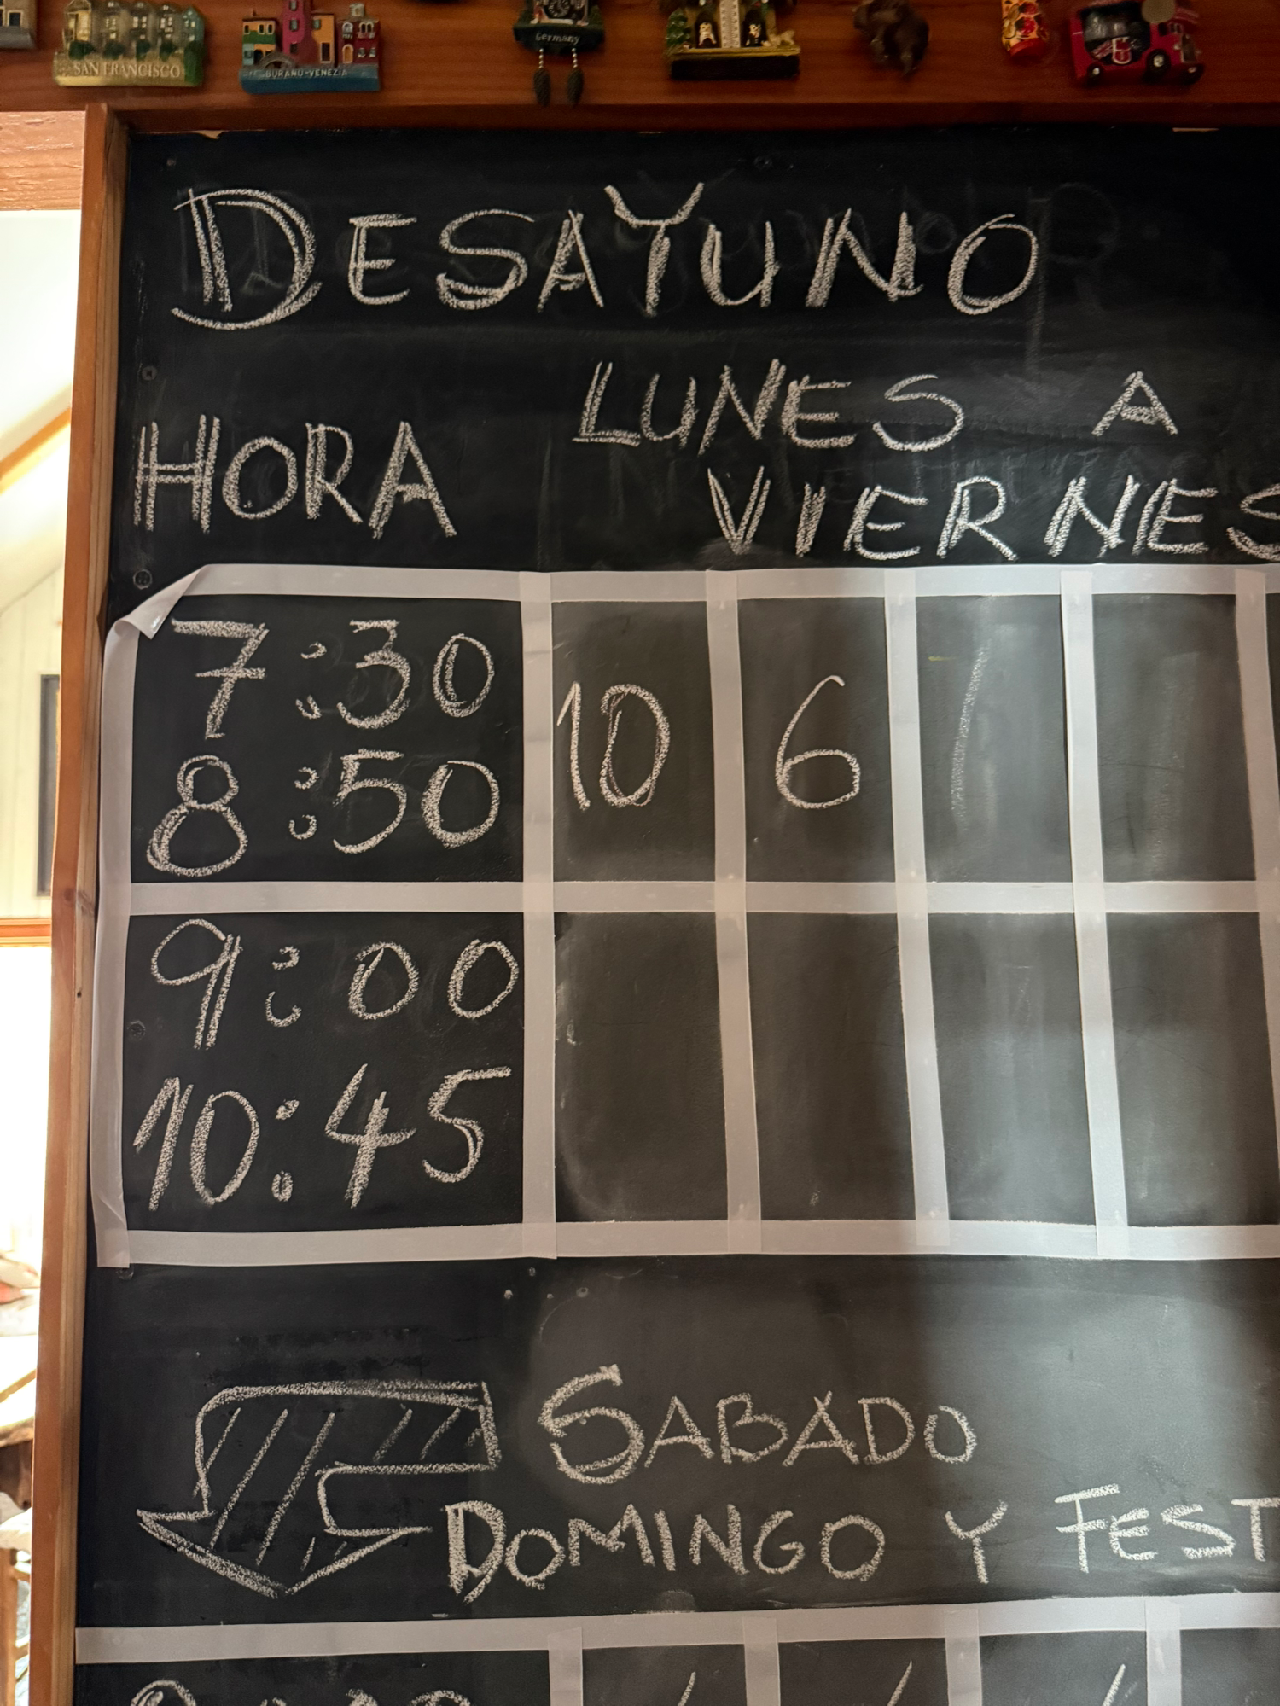 SAN FRANCISCO
BURANO-VENEZIA
Germany
DESAYUNO
HORA
LUNES A
VIERNES
7:30
8:50
10
6
9:00
10:45
SABADO
DOMINGO Y FEST